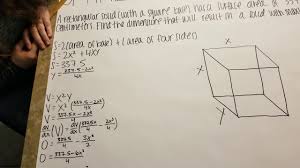 A rectangular solid (with a square base) has a surface area of 337.5
centimeters. Find the dimensions that will result in a solid with
S=2(area of base)+(area of four sides)
S=2x²+4xy
S=337.5
y=337.5-2x²/4x
V=x²y
V=x²(337.5-2x²/4x)
V=337.5x-2x³/4
d/dx(V)=d/dx(337.5x/4-2x³/4)
0=337.5/4-3x²/2
0=337.5-6x²/4
x
y
x